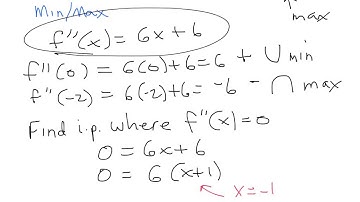 Min/Max
max
f''(x) = 6x + 6
f''(0) = 6(0)+6 = 6 + ∪ min
f''(-2) = 6(-2)+6 = -6 - ∩ max
Find i.p. where f''(x) = 0
0 = 6x + 6
0 = 6 (x+1)
x = -1